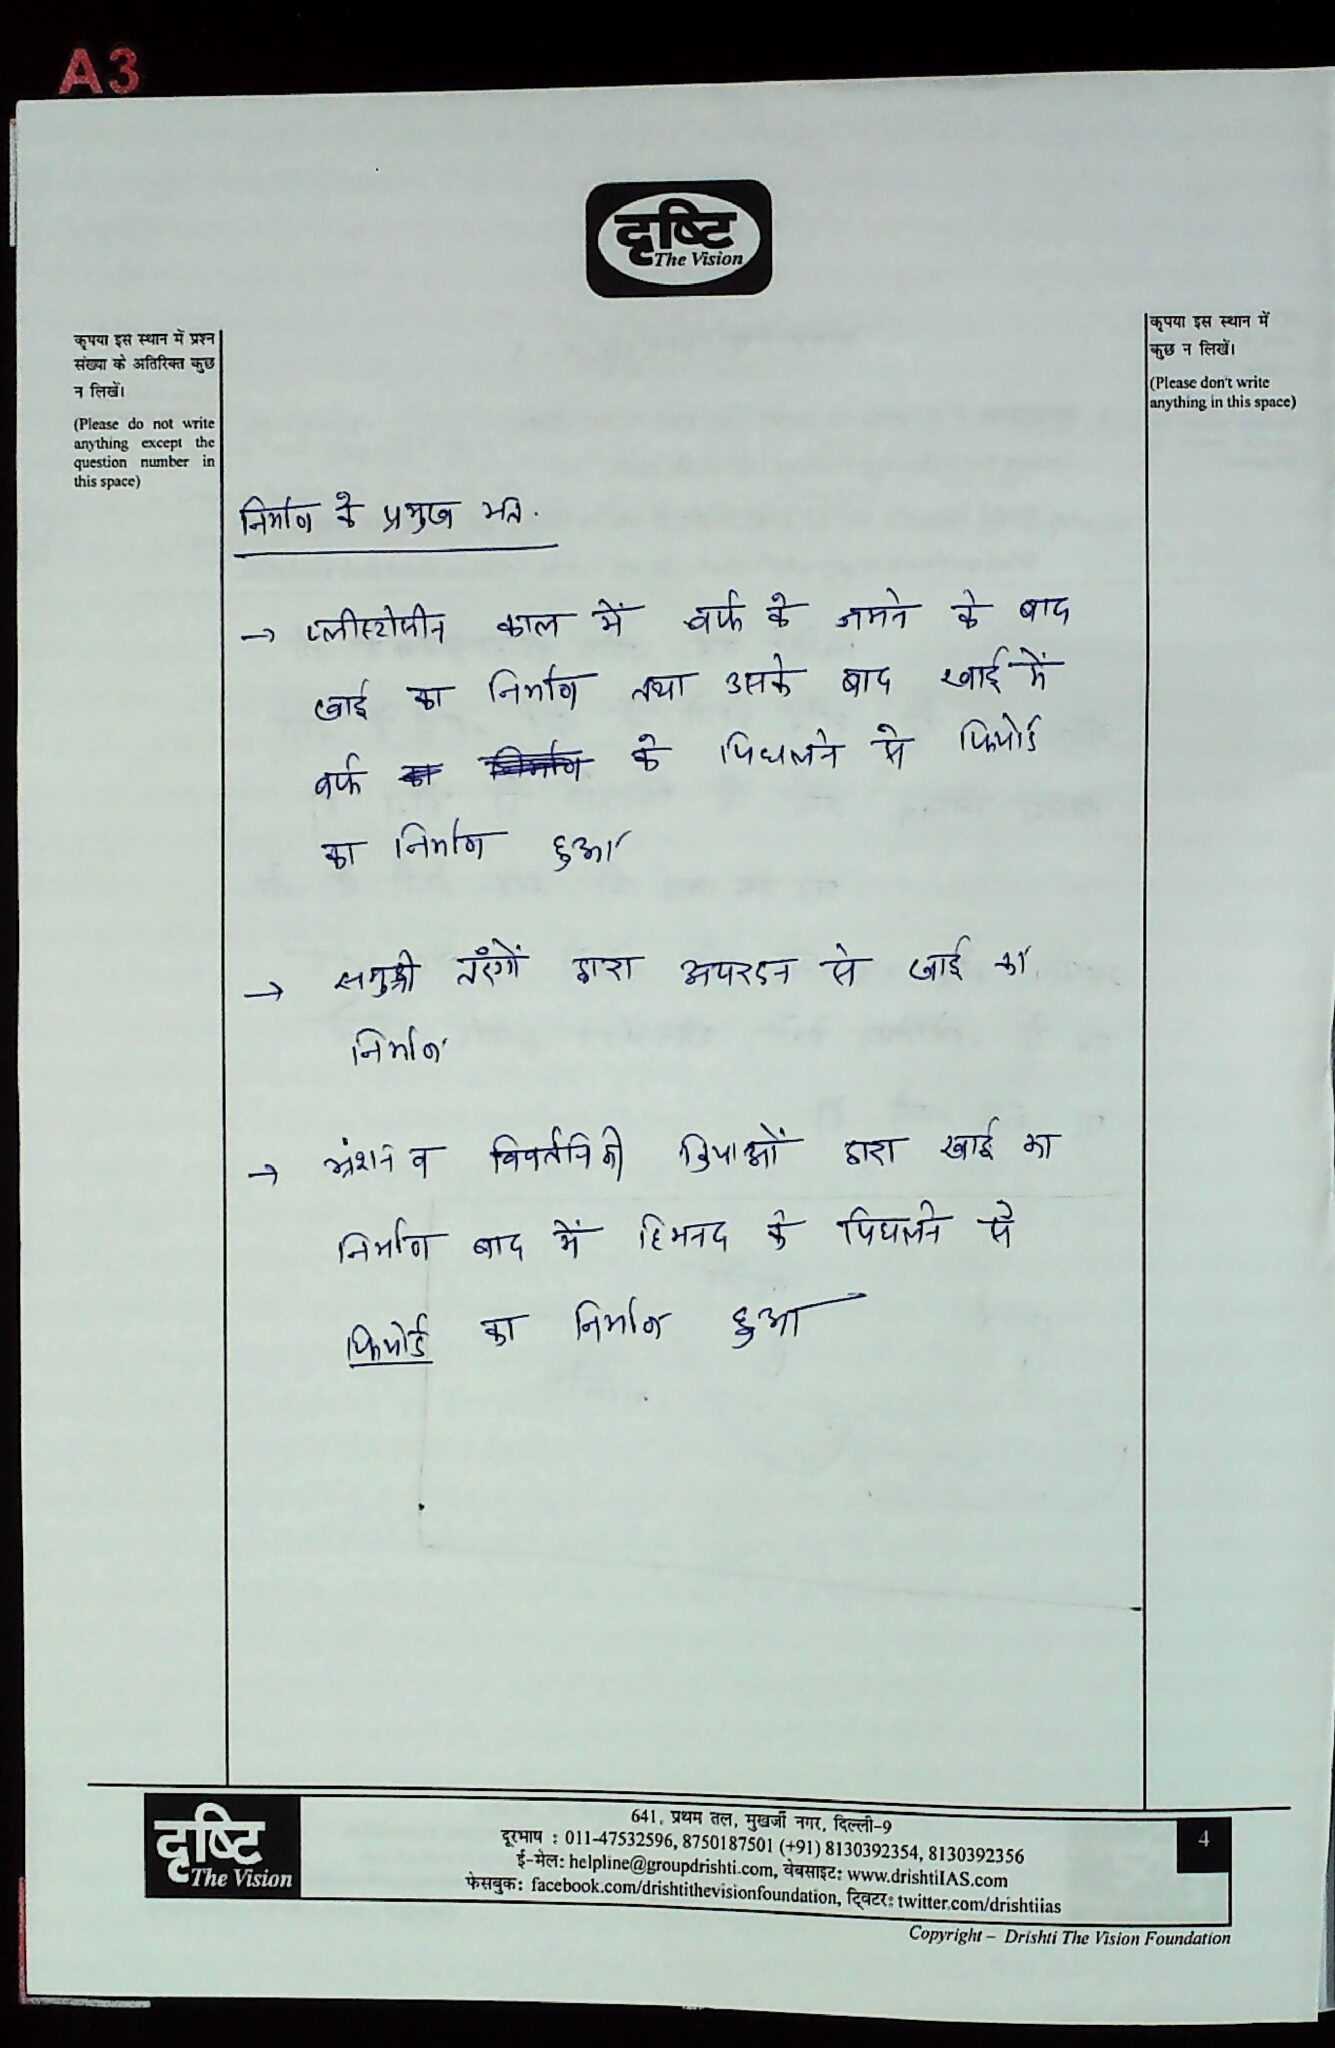 A3
दृष्टि
The Vision
कृपया इस स्थान में प्रश्न
संख्या के अतिरिक्त कुछ
न लिखें।
(Please do not write
anything except the
question number in
this space)
कृपया इस स्थान में
कुछ न लिखें।
(Please don't write
anything in this space)
निर्माण के प्रमुख मत.
→ प्लीस्टोसीन काल में बर्फ के जमने के बाद
खाई का निर्माण तथा उसके बाद खाई में
बर्फ का निर्माण के पिघलने से फियोर्ड
का निर्माण हुआ
→ समुद्री तरंगों द्वारा अपरदन से खाई का
निर्माण
→ भ्रंशन व विवर्तनिकी क्रियाओं द्वारा खाई का
निर्माण बाद में हिमनद के पिघलने से
फियोर्ड का निर्माण हुआ
दृष्टि
The Vision
641, प्रथम तल, मुखर्जी नगर, दिल्ली-9
दूरभाष : 011-47532596, 8750187501 (+91) 8130392354, 8130392356
ई-मेल: helpline@groupdrishti.com, वेबसाइट: www.drishtiIAS.com
फेसबुक: facebook.com/drishtithevisionfoundation, ट्विटर: twitter.com/drishtiias
4
Copyright – Drishti The Vision Foundation